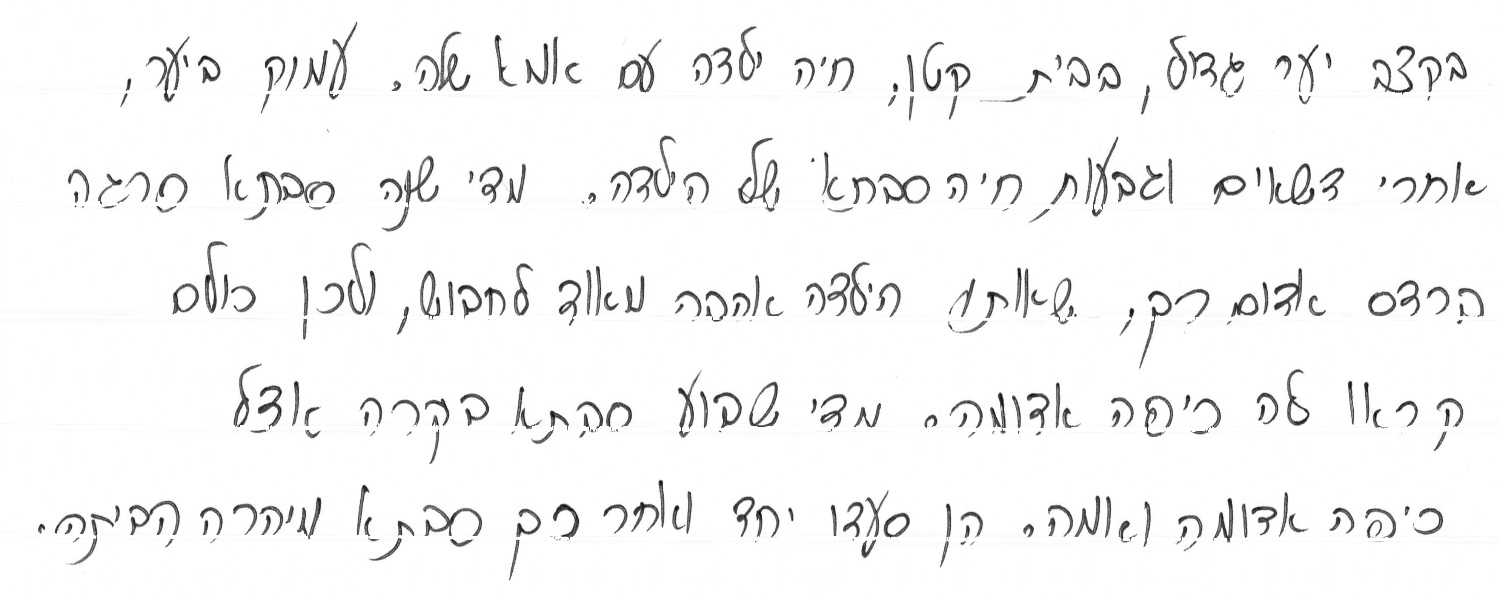 בקצב יער גדול, בבית קטן, חיה ילדה עם אמא שלה. עמוק ביער,
אחרי דשאים וגבעות חיה סבתא של הילדה. מדי שנה סבתא סרגה
ברדס אדום רק, שאותו הילדה אהבה מאוד לחבוש, ולכן כולם
קראו לה כיפה אדומה. מדי שבוע סבתא בקרה אצל
כיפה אדומה ואמה. הן סעדו יחד ואחר כך סבתא מיהרה הביתה.